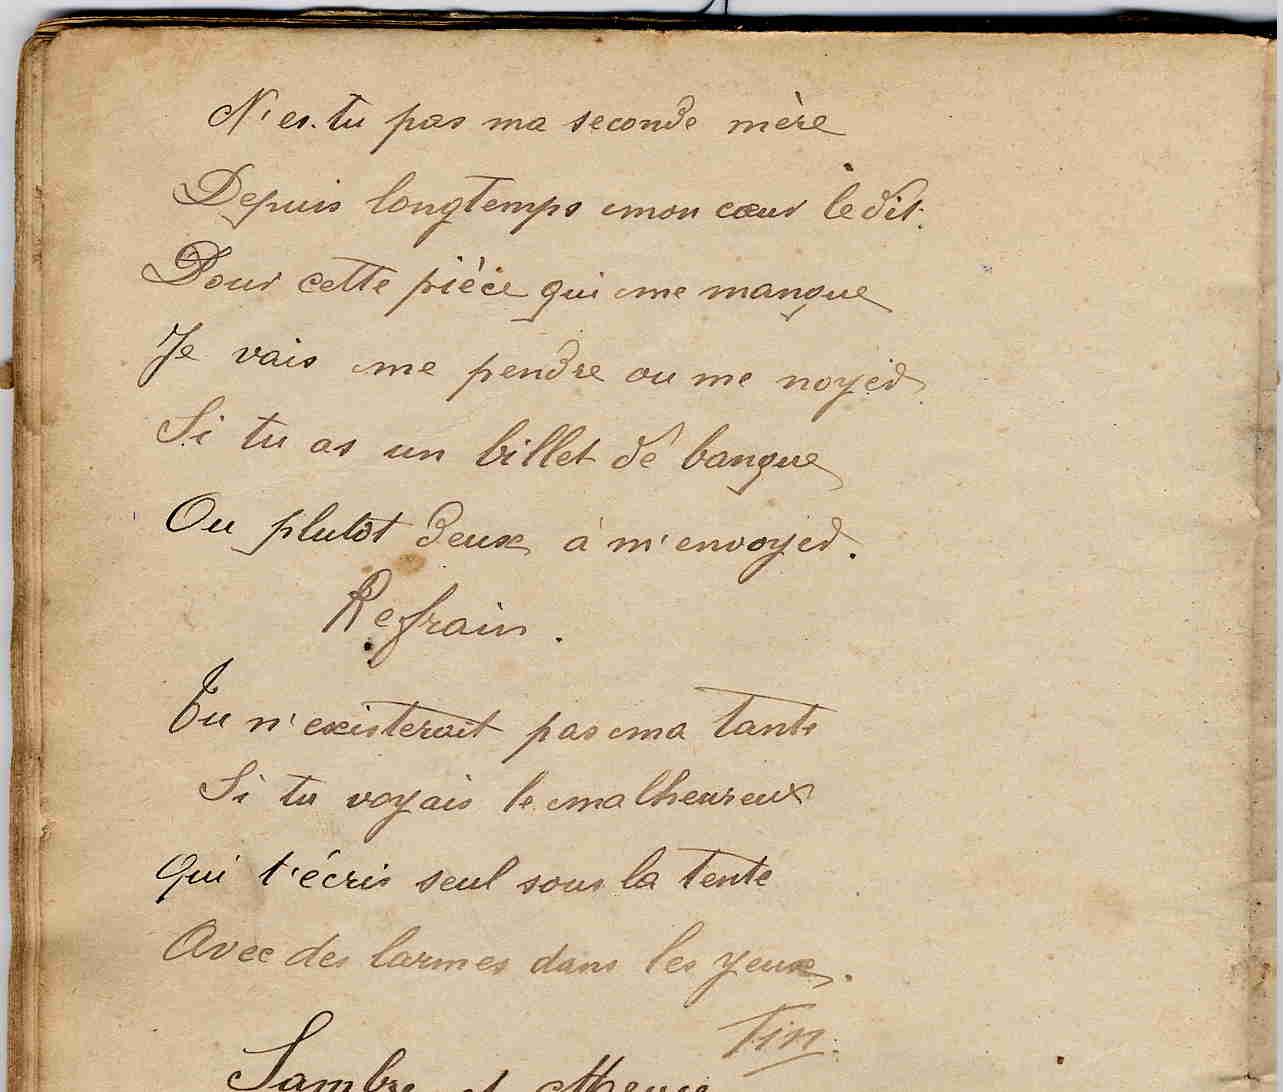 N'es-tu pas ma seconde mère
Depuis longtemps mon cœur le dit.
Pour cette pièce qui me manque
Je vais me pendre ou me noyer
Si tu as un billet de banque
Ou plutôt deux à m'envoyer.
Refrain.
Tu n'existerait pas ma tante
Si tu voyais le malheureux
Qui t'écris seul sous la tente
Avec des larmes dans les yeux.
Fin.
Sambre et Meuse